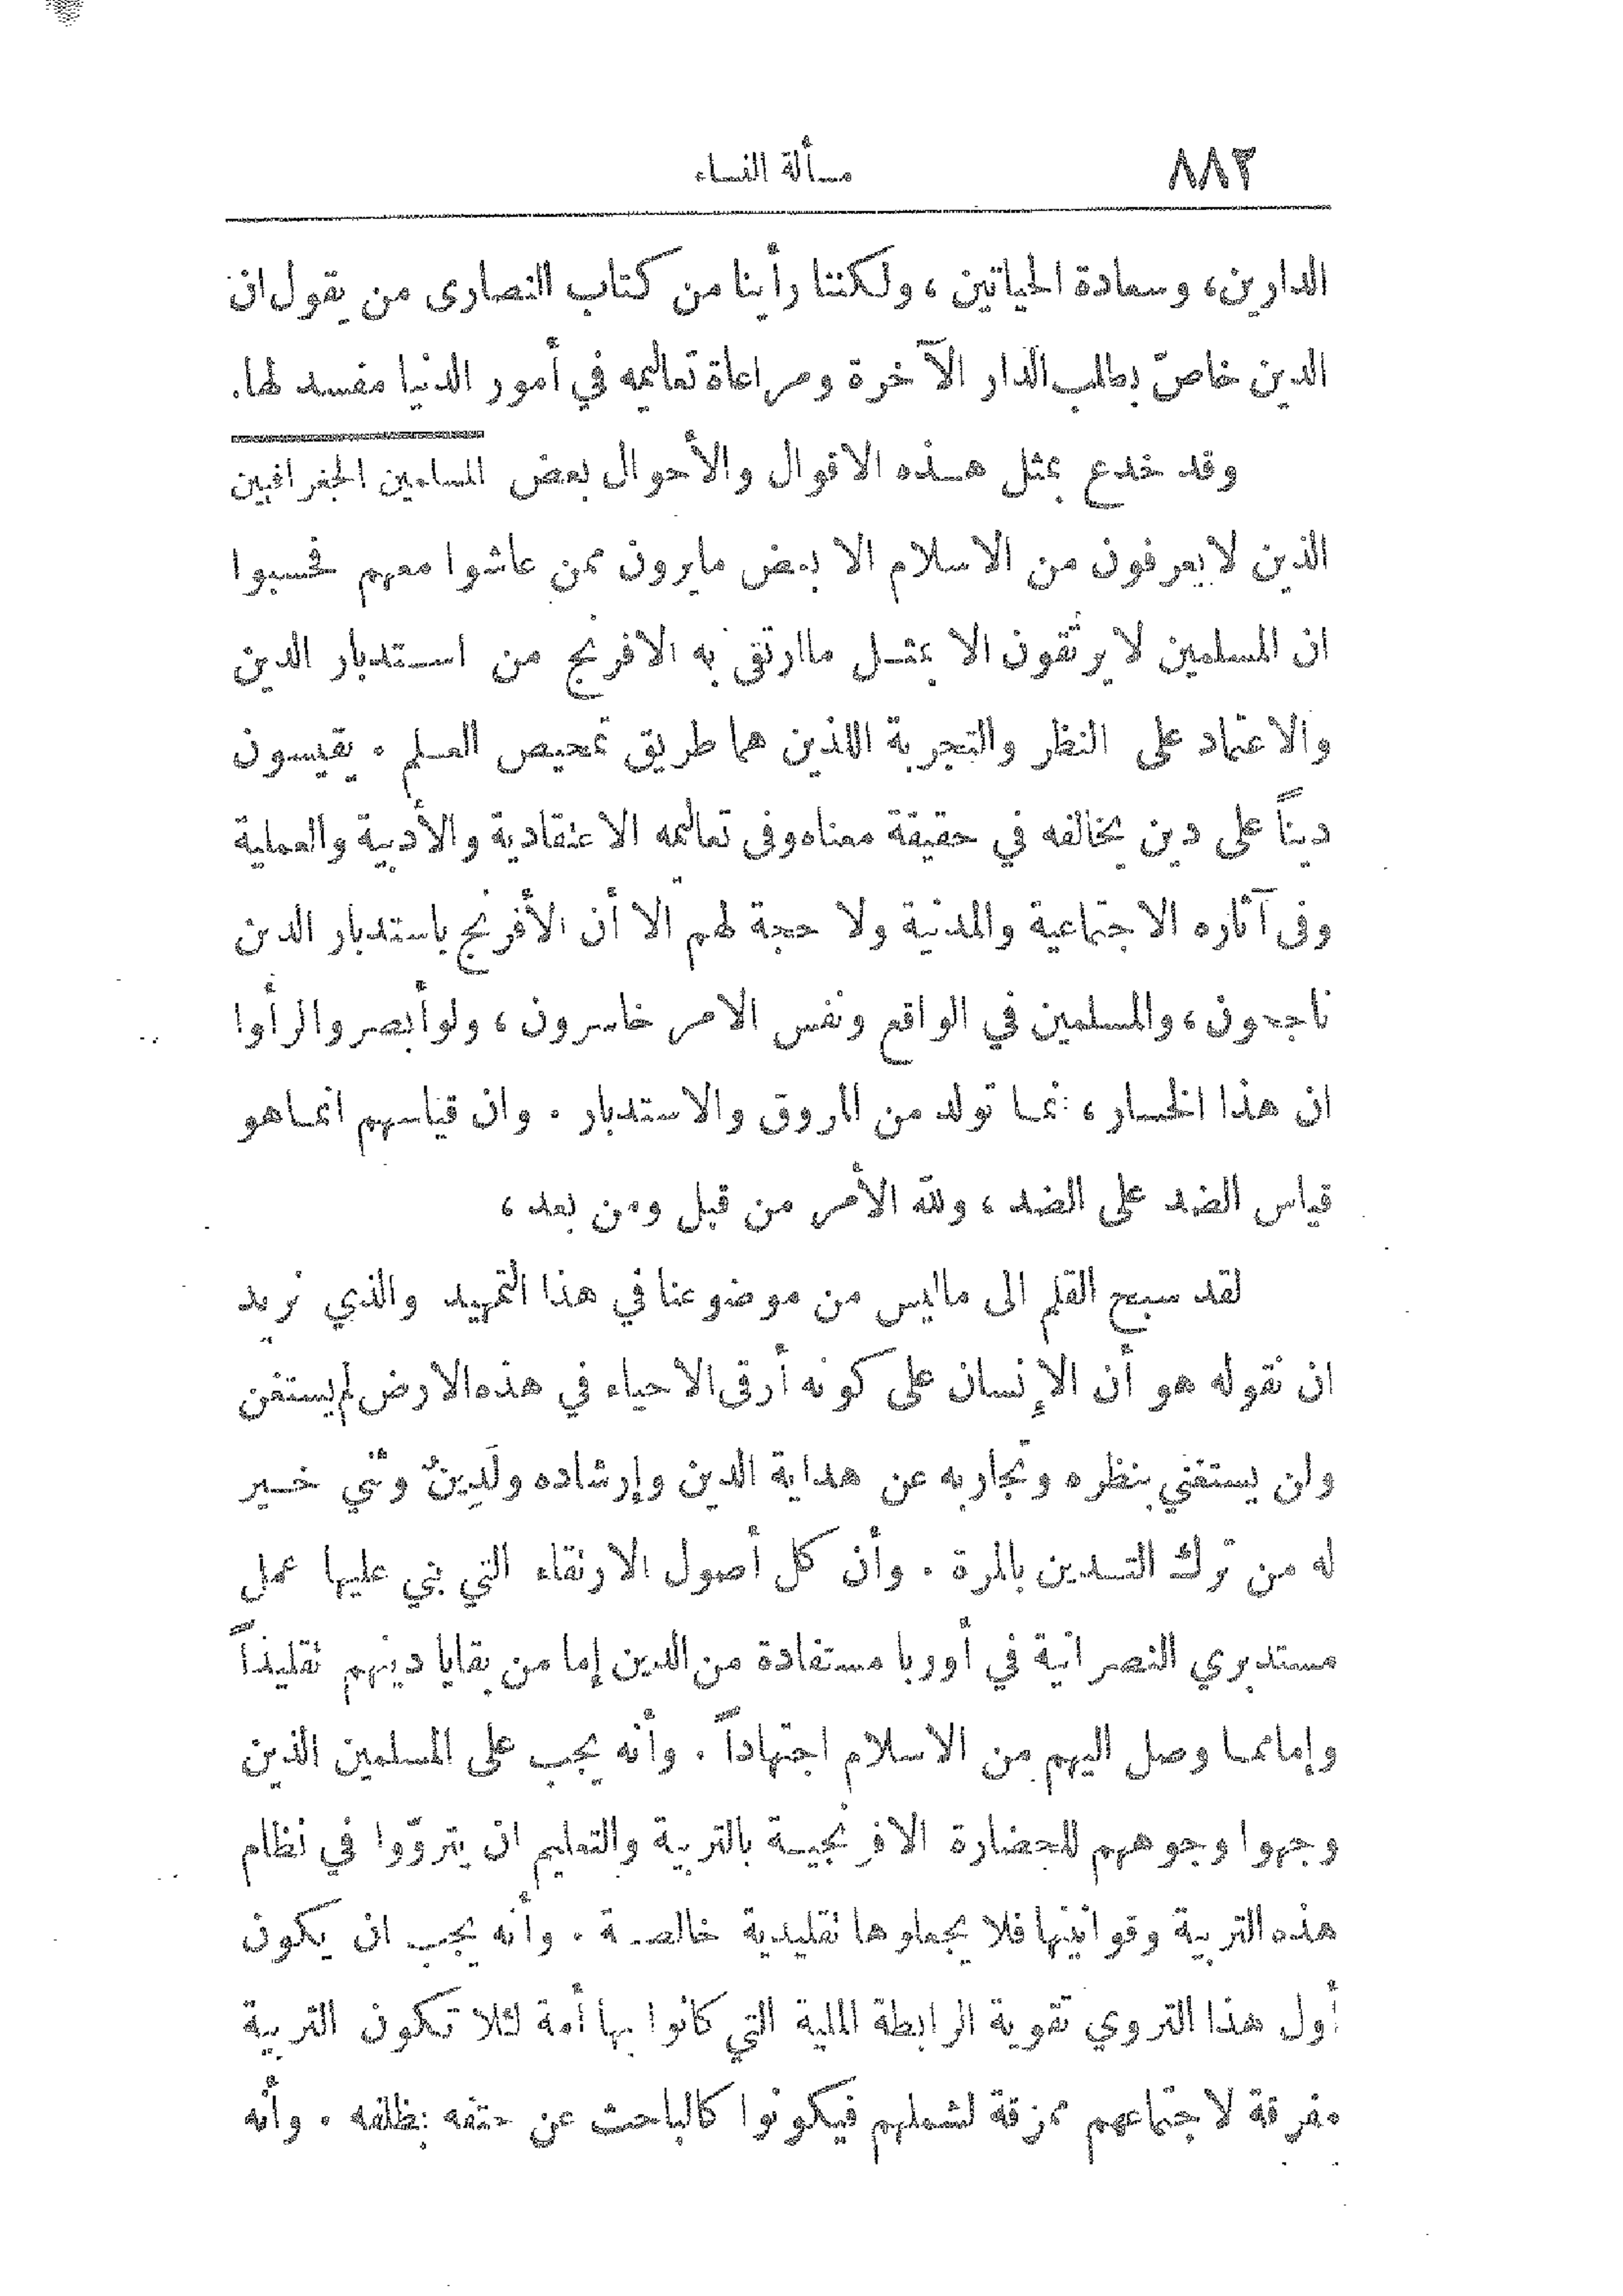 ٨٨٢ مسألة النساء
الدارين، وسعادة الحياتين ، ولكننا رأينا من كتاب النصارى من يقول ان
الدين خاصّ بطلب الدار الآخرة ومراعاة تعاليمه في أمور الدنيا مفسد لها.
وقد خدع بمثل هذه الاقوال والأحوال بعض المسلمين الجغرافيين
الذين لا يعرفون من الاسلام الا بعض مايرون ممن عاشوا معهم فحسبوا
ان المسلمين لا يرتقون الا بمثل ماارتقى به الافرنج من استدبار الدين
والاعتماد على النظر والتجربة اللذين هما طريق تمحيص العلم . يقيسون
ديناً على دين يخالفه في حقيقة معناه وفى تعاليمه الاعتقادية والأدبية والعملية
وفى آثاره الاجتماعية والمدنية ولا حجة لهم الا أن الأفرنج باستدبار الدين
ناجحون ، والمسلمين في الواقع ونفس الامر خاسرون ، ولو أبصروا لرأوا
ان هذا الخسار ، انما تولد من المروق والاستدبار . وان قياسهم انما هو
قياس الضد على الضد ، ولله الأمر من قبل ومن بعد ،
لقد سبح القلم الى ماليس من موضوعنا في هذا التمهيد والذي نريد
ان نقوله هو أن الإنسان على كونه أرقى الاحياء في هذه الارض لم يستغن
ولن يستغني بنظره وتجاربه عن هداية الدين وإرشاده ولَدِينٌ وثني خير
له من ترك التدين بالمرة . وأن كل أصول الارتقاء التي بني عليها عمل
مستدبري النصرانية في أوربا مستفادة من الدين إما من بقايا دينهم تقليداً
وإما مما وصل اليهم من الاسلام اجتهاداً . وأنه يجب على المسلمين الذين
وجهوا وجوههم للحضارة الافرنجية بالتربية والتعليم ان يتروّوا في نظام
هذه التربية وقوانينها فلا يجعلوها تقليدية خالصة . وأنه يجب ان يكون
أول هذا التروي تقوية الرابطة الملية التي كانوا بها أمة لئلا تكون التربية
مفرقة لاجتماعهم ممزقة لشملهم فيكونوا كالباحث عن حتفه بظلفه . وأنه